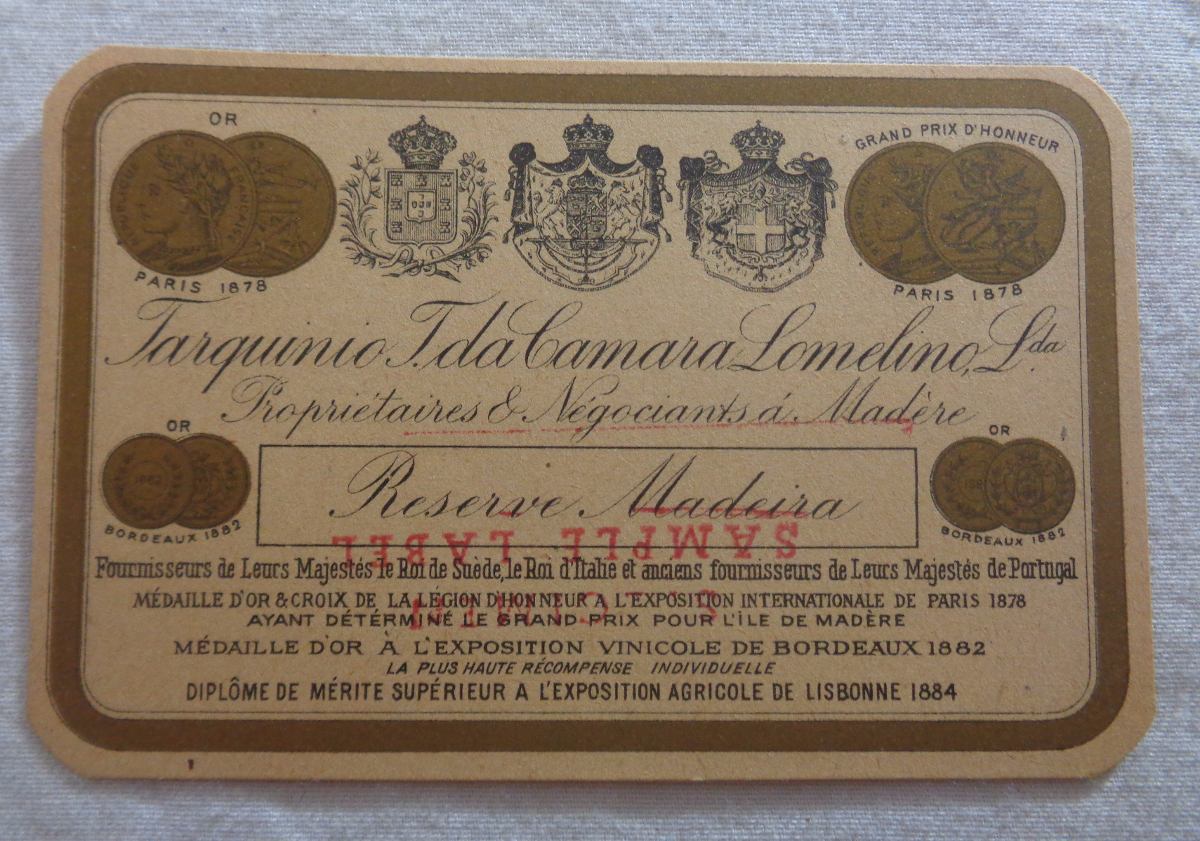 OR
GRAND PRIX D'HONNEUR
PARIS 1878
PARIS 1878
Tarquinio T. da Camara Lomelino, Lda
Propriétaires & Négociants á Madère
OR
OR
BORDEAUX 1882
BORDEAUX 1882
Reserve Madeira
SAMPLE LABEL
Fournisseurs de Leurs Majestés le Roi de Suède, le Roi d'Italie et anciens fournisseurs de Leurs Majestés de Portugal
MÉDAILLE D'OR & CROIX DE LA LÉGION D'HONNEUR A L'EXPOSITION INTERNATIONALE DE PARIS 1878
AYANT DÉTÉRMINÉ LE GRAND PRIX POUR L'ILE DE MADÈRE
MÉDAILLE D'OR À L'EXPOSITION VINICOLE DE BORDEAUX 1882
LA PLUS HAUTE RÉCOMPENSE INDIVIDUELLE
DIPLÔME DE MÉRITE SUPÉRIEUR A L'EXPOSITION AGRICOLE DE LISBONNE 1884